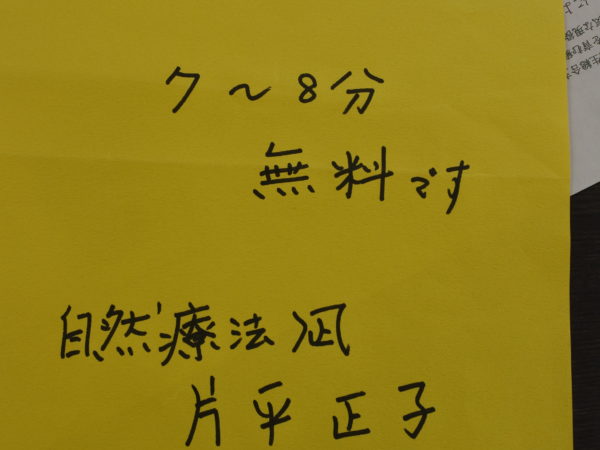 7～8分
無料です
自然療法 凪
片平正子